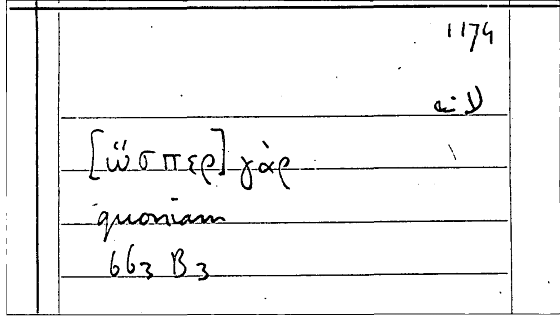 1174
لأنه
[ὥσπερ] γὰρ
quoniam
663 B 3